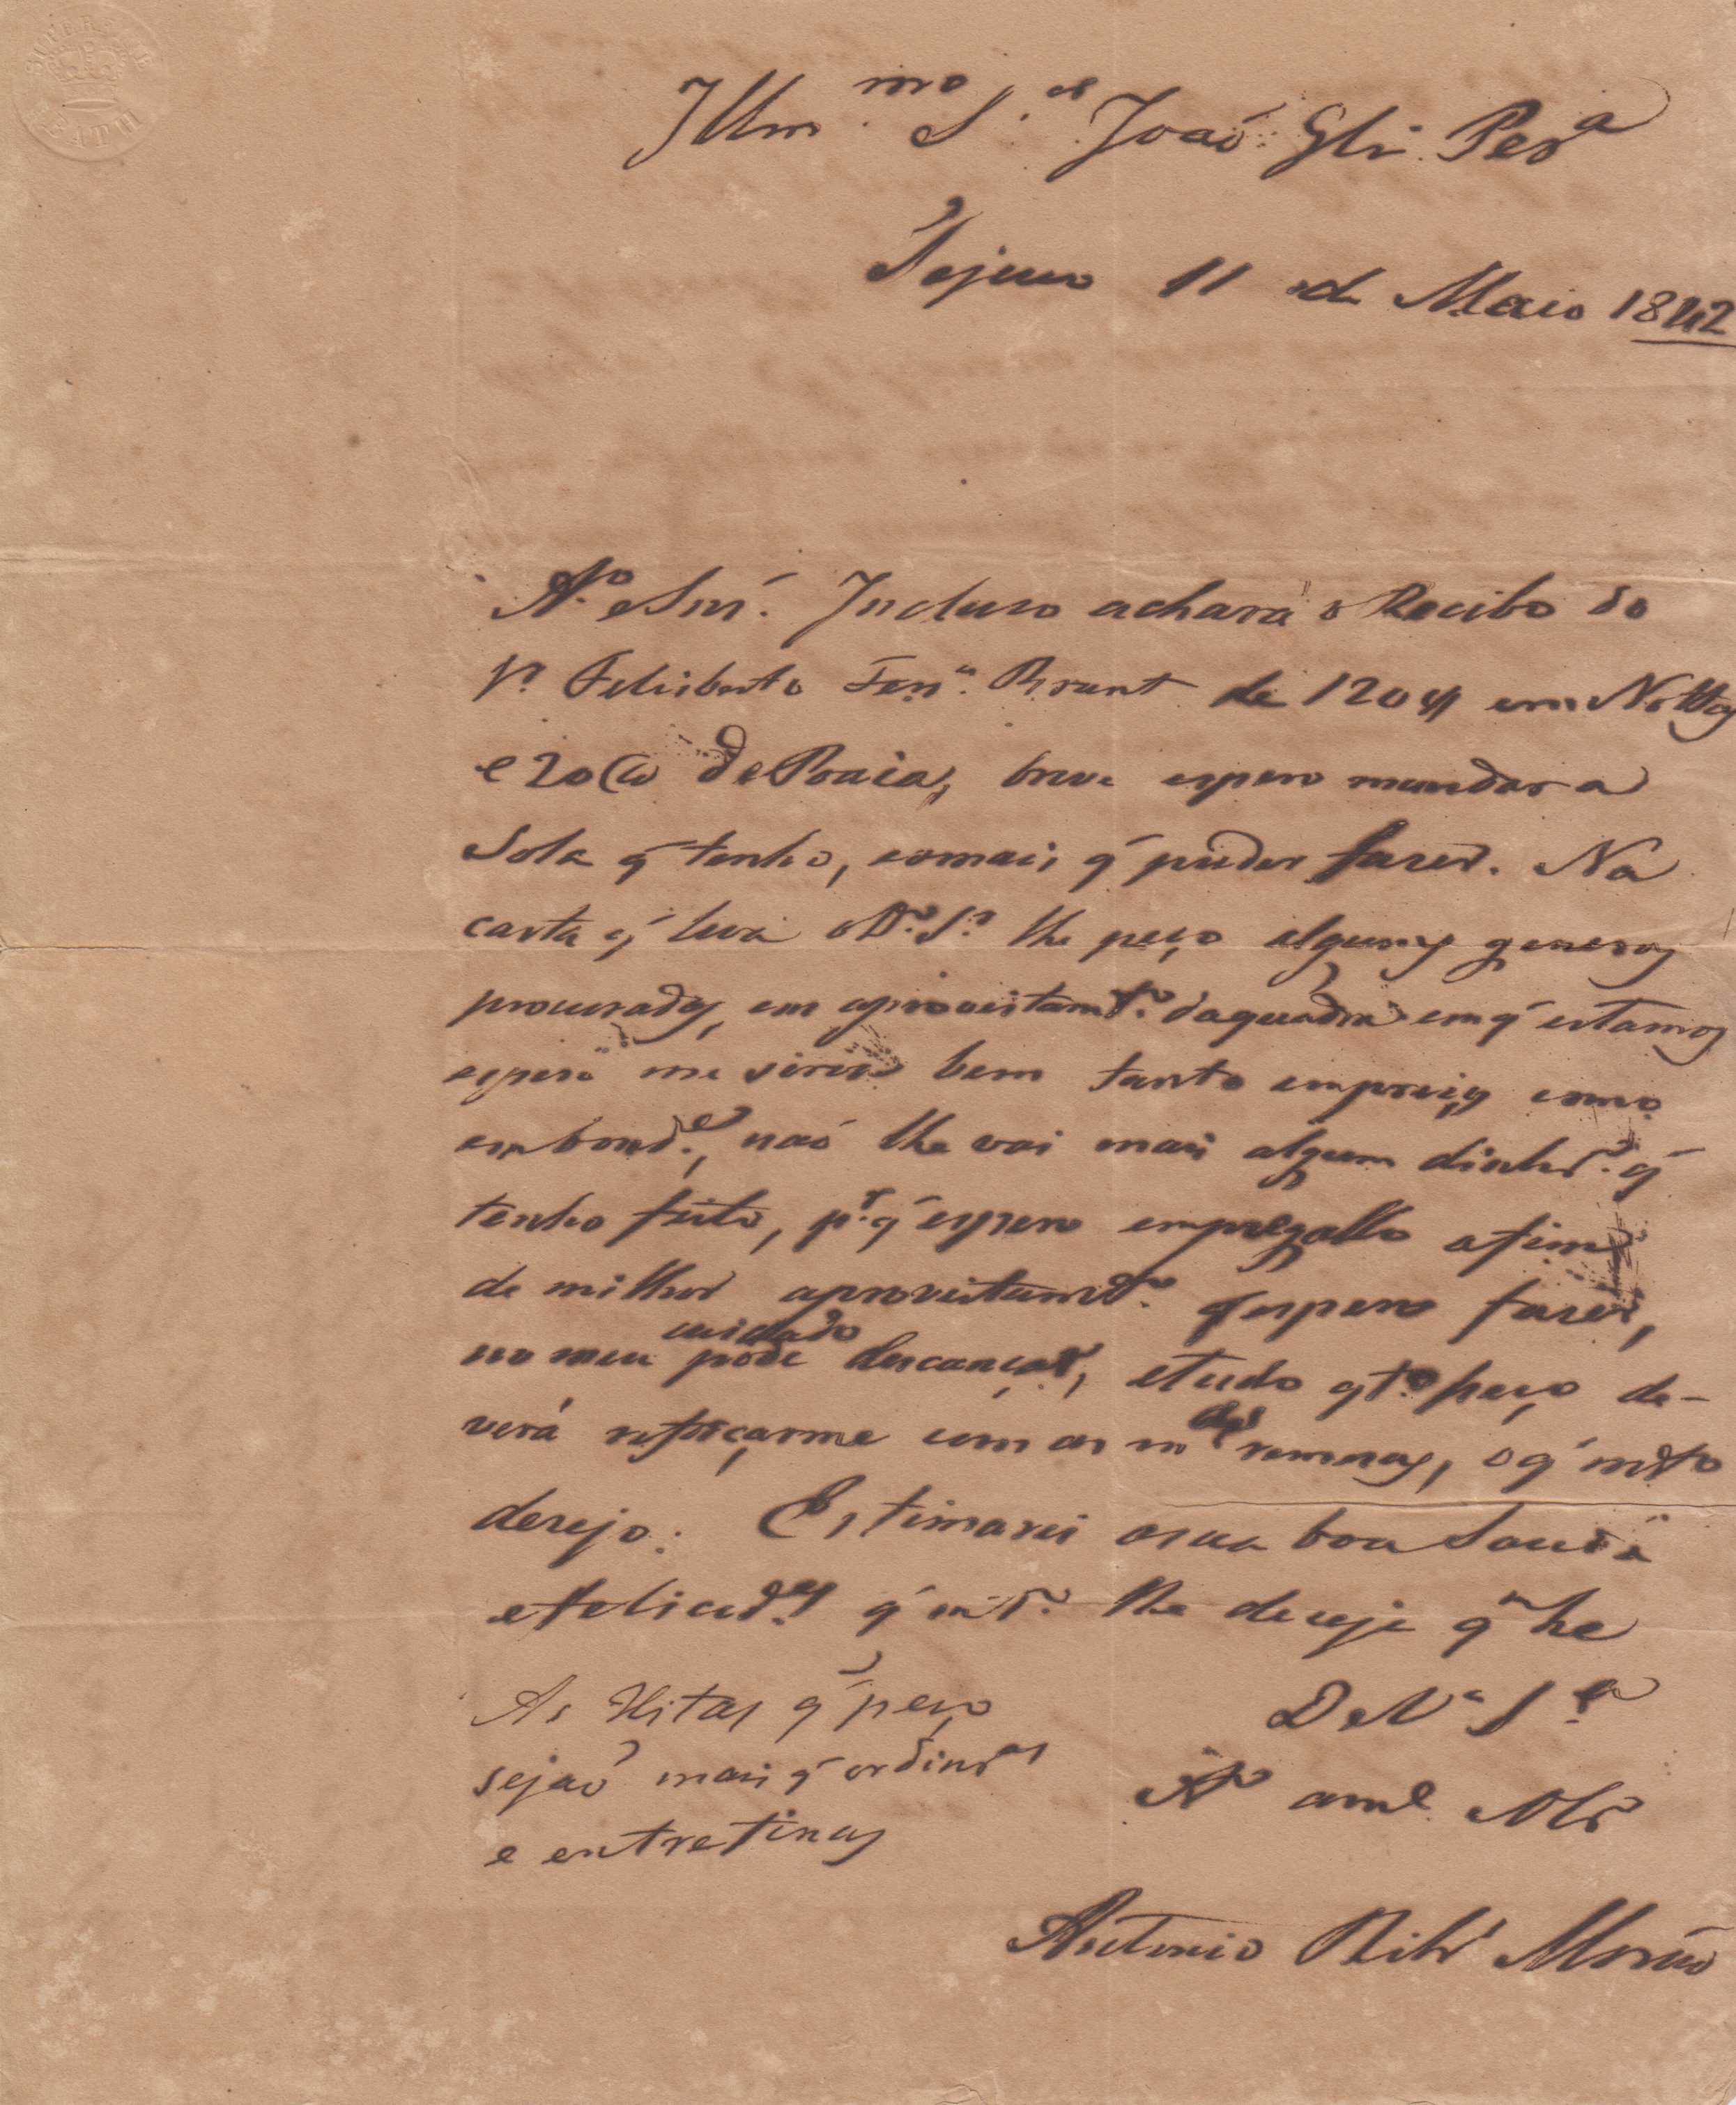 SUPERFINE
BATH
Illm.mo S.or João Glz Per.a
Tejuco 11 de Maio 1842
A.º e Snr. Incluso achará o Recibo do
Sr. Felisberto Ferr.a Brant de 120$ em Nottas
e 20@ de Poaia, breve espero mandar a
Sola q' tenho, e o mais q' puder fazer. Na
carta q' leva o D.º S.r lhe peço alguns generos
procurados, em aproveitam.to da quadra em q' estamos
espero me sirva bem tanto em preços como
em bond.e, não lhe vai mais algum dinhr.º q'
tenho feito, p.r q' espero empregallo afim
de milhor aproveitam.to q' espero fazer,
no meu cuidado pode descançar, e tudo q.to peço de-
verá reforçarme com as m.as remeças, o q' m.to
desejo. Estimarei a sua boa Saude
e felicid.es q' m.to lhe deseja q.m he
De V.a S.a
As Xitas q' peço
sejão mais q' ordinr.as
e entrefinas
A.º am.e Obr.
Antonio Ribr.